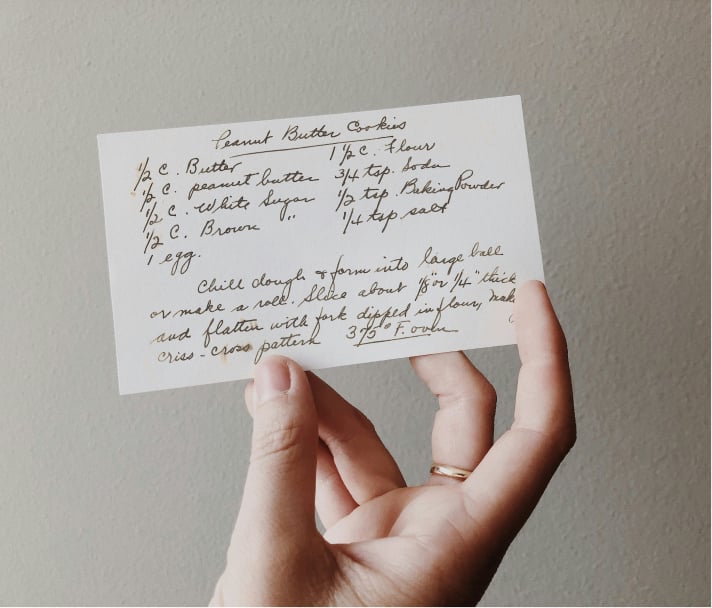 Peanut Butter Cookies
½ C. Butter
½ C. peanut butter
½ C. White Sugar
½ C. Brown "
1 egg.
1 ½ C. Flour
3/4 tsp. Soda
½ tsp. Baking Powder
¼ tsp salt
Chill dough & form into large ball
or make a roll. Slice about ⅛" or ¼" thick
and flatten with fork dipped in flour, make
criss-cross pattern 375° F. oven